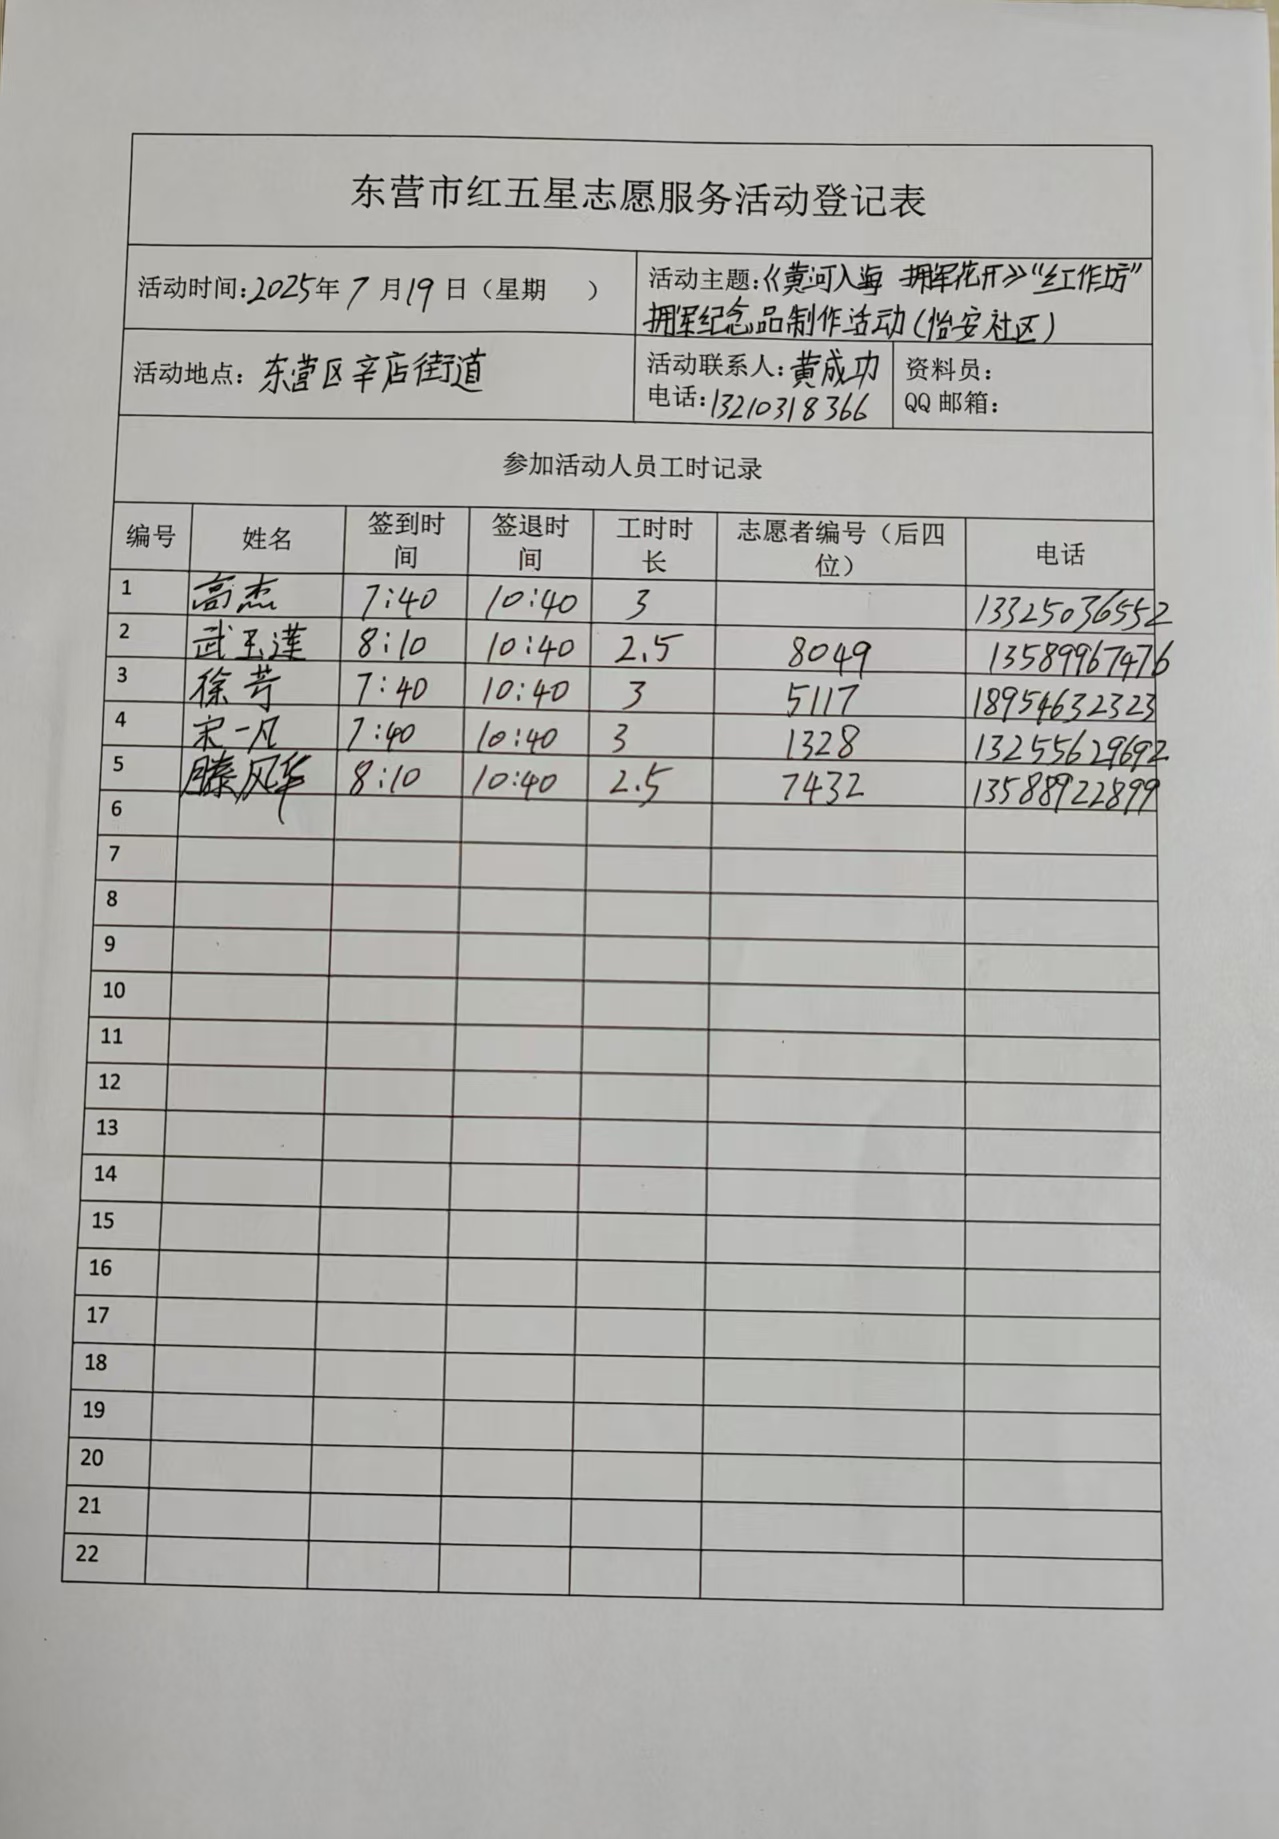 东营市红五星志愿服务活动登记表
活动时间:2025年7月19日（星期　　）
活动主题:《黄河入海 拥军花开》“红工作坊”
拥军纪念品制作活动(怡安社区)
活动地点：东营区辛店街道
活动联系人:黄成功
电话:13210318366
资料员：
QQ邮箱：
参加活动人员工时记录
编号 姓名 签到时间 签退时间 工时时长 志愿者编号（后四位） 电话
1 高杰 7:40 10:40 3 13325036552
2 武玉莲 8:10 10:40 2.5 8049 13589967476
3 徐芳 7:40 10:40 3 5117 18954632323
4 宋一凡 7:40 10:40 3 1328 13255629692
5 滕风华 8:10 10:40 2.5 7432 13588922899
6
7
8
9
10
11
12
13
14
15
16
17
18
19
20
21
22